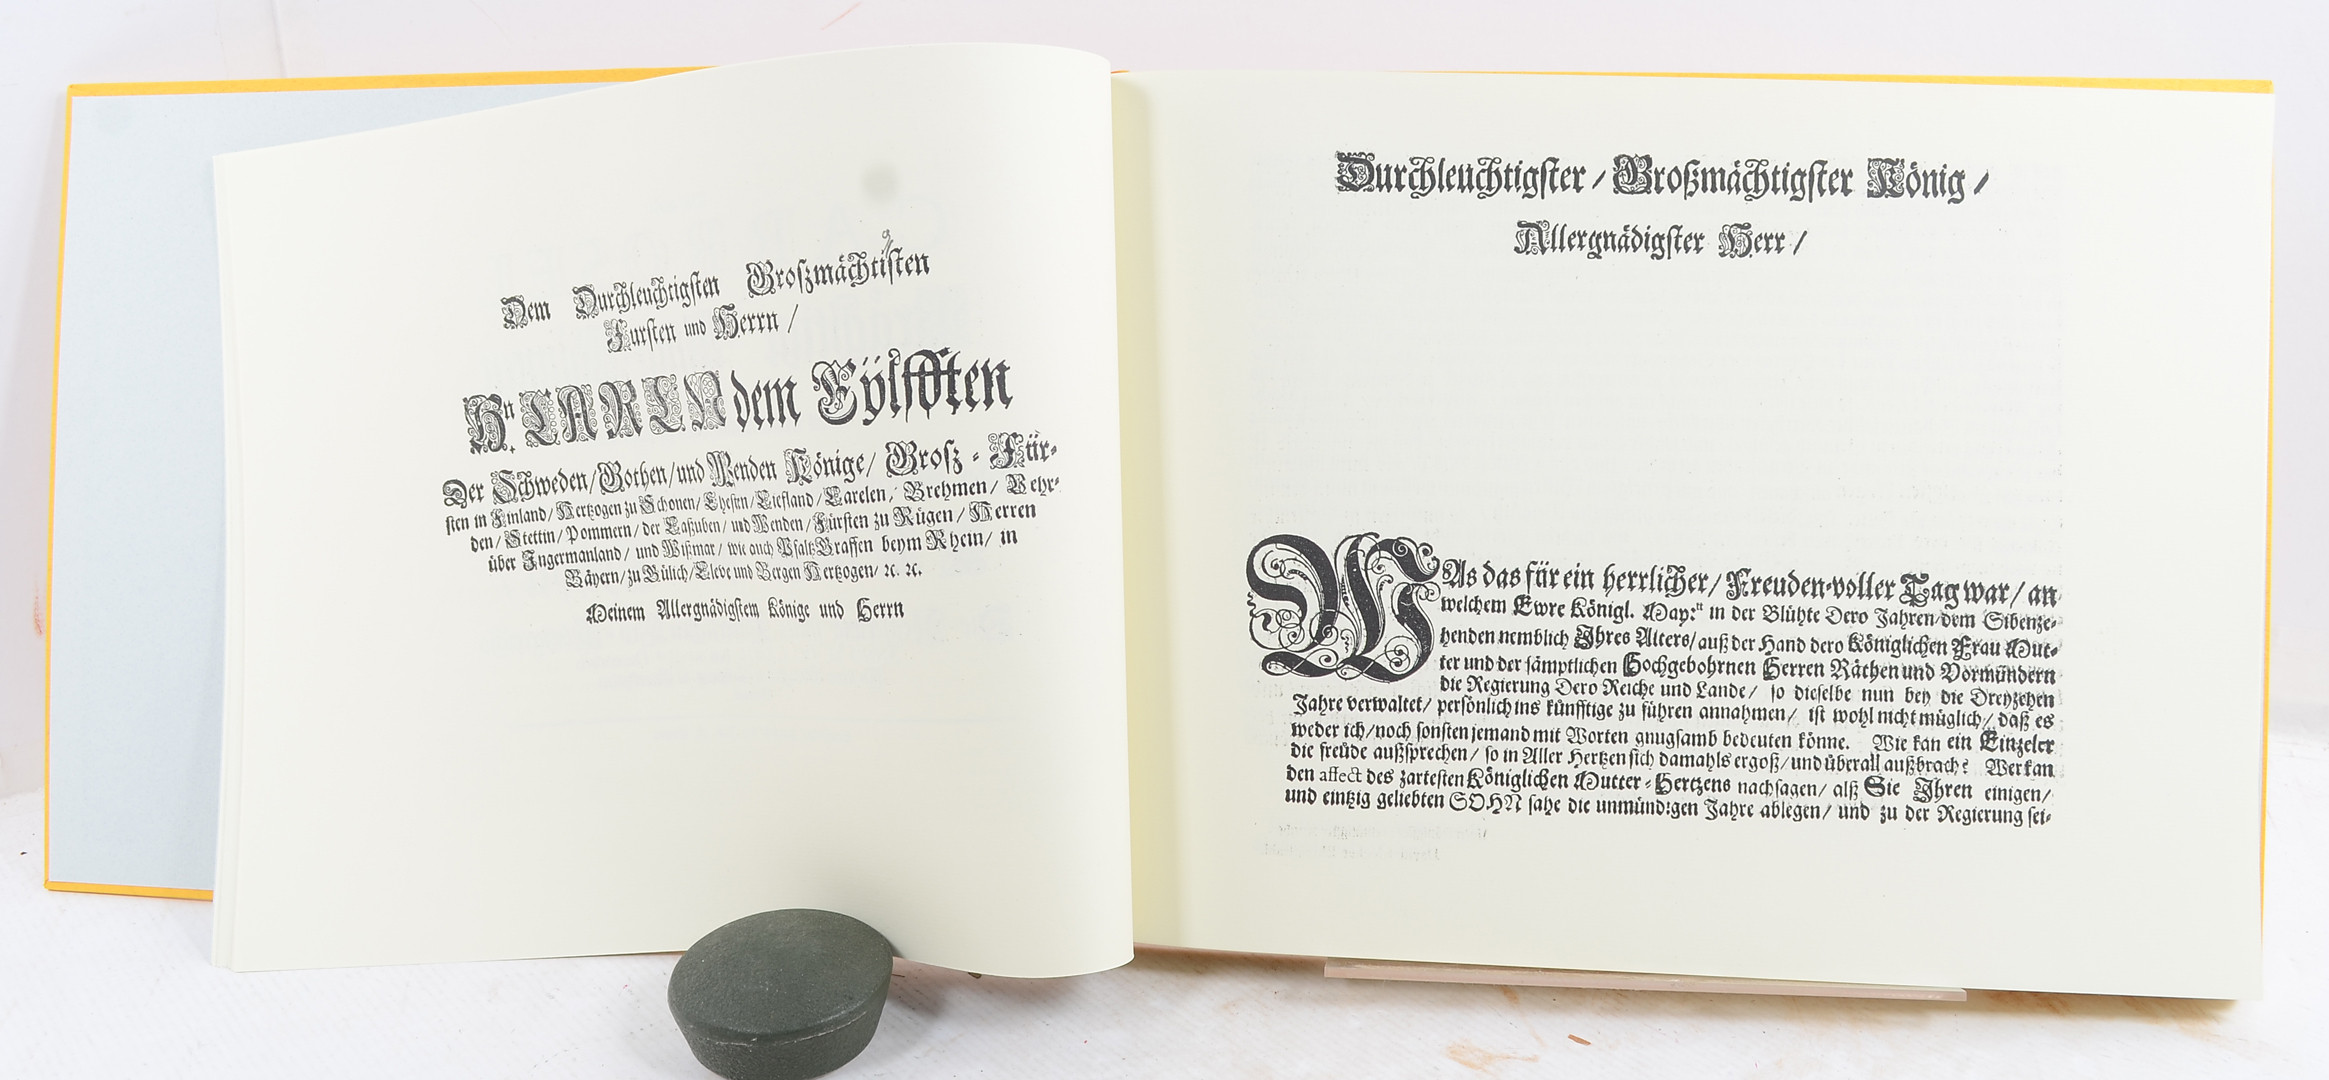 Dem Durchleuchtigsten Großmächtisten
g
Fursten und Herrn /
Hn. CARLN dem Eÿlfften
Der Schweden / Gothen / und Wenden Könige / Groß - Für-
sten in Finland / Hertzogen zu Schonen / Ehesten / Liefland / Carelen / Brehmen / Vehr-
den / Stettin / Pommern / der Caßuben / und Wenden / Fürsten zu Rügen / Herren
über Ingermanland / und Wißmar / wie auch Pfaltz Graffen beym Rhein / in
Bäyern / zu Gülich / Cleve und Bergen Hertzogen / ꝛc. ꝛc.
Meinem Allergnädigstem Könige und Herrn
Durchleuchtigster / Großmächtigster König /
Allergnädigster Herr /
WAs das für ein herrlicher / Freuden-voller Tag war / an
welchem Ewre Königl. May:tt in der Blühte Dero Jahren / dem Sibenze-
henden nemblich Ihres Alters / auß der Hand dero Königlichen Frau Mut-
ter und der sämptlichen Hochgebohrnen Herren Räthen und Vormündern
die Regierung Dero Reiche und Lande / so dieselbe nun bey die Dreyzehen
Jahre verwaltet / persönlich ins künfftige zu führen annahmen / ist wohl nicht müglich / daß es
weder ich / noch sonsten jemand mit Worten gnugsamb bedeuten könne. Wie kan ein Einzeler
die freüde außsprechen / so in Aller Hertzen sich damahls ergoß / und überall außbrach? Wer kan
den affect des zartesten Königlichen Mutter-Hertzens nachsagen / alß Sie Ihren einigen /
und eintzig geliebten SOHN sahe die unmündigen Jahre ablegen / und zu der Regierung sei-